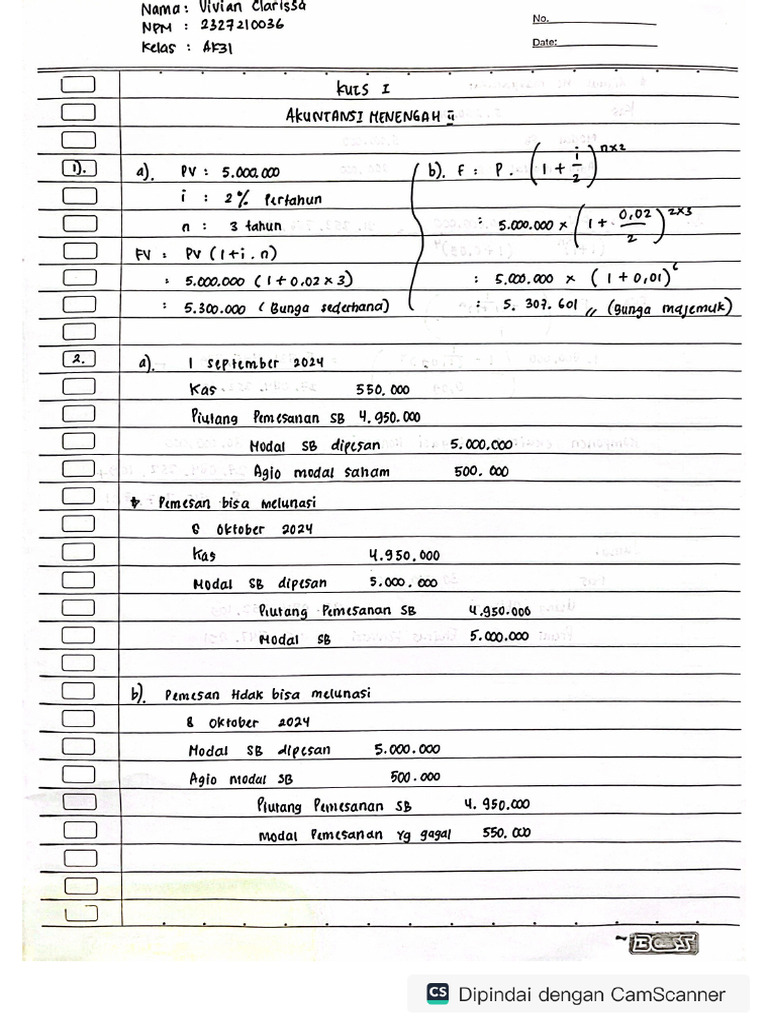 Nama : Vivian Clarissa
NPM : 2327210036
Kelas : AK31
No.
Date:
KUIS I
AKUNTANSI MENENGAH II
1). a). PV : 5.000.000
i : 2% Pertahun
n : 3 tahun
FV : PV (1+i . n)
: 5.000.000 (1+0.02 x 3)
: 5.300.000 (Bunga sederhana)
b). F : P . (1 + i/2)^n×2
: 5.000.000 x (1 + 0,02/2)^2×3
: 5.000.000 x (1+0,01)^6
: 5.307.601 // (Bunga majemuk)
2. a). 1 september 2024
Kas 550.000
Piutang Pemesanan SB 4.950.000
Modal SB dipesan 5.000.000
Agio modal saham 500.000
Pemesan bisa melunasi
8 Oktober 2024
Kas 4.950.000
Modal SB dipesan 5.000.000
Piutang Pemesanan SB 4.950.000
Modal SB 5.000.000
b). Pemesan tidak bisa melunasi
8 Oktober 2024
Modal SB dipesan 5.000.000
Agio modal SB 500.000
Piutang Pemesanan SB 4.950.000
Modal Pemesanan yg gagal 550.000
BOSS
CS Dipindai dengan CamScanner